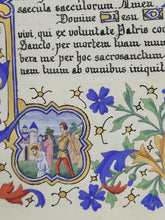 saecula saeculorum. Amen
Domine Jesu
vivi, qui ex voluntate Patris co
Sancto, per mortem tuam mun
bera me per hoc sacrosanctum
nem tuum ab omnibus iniquit